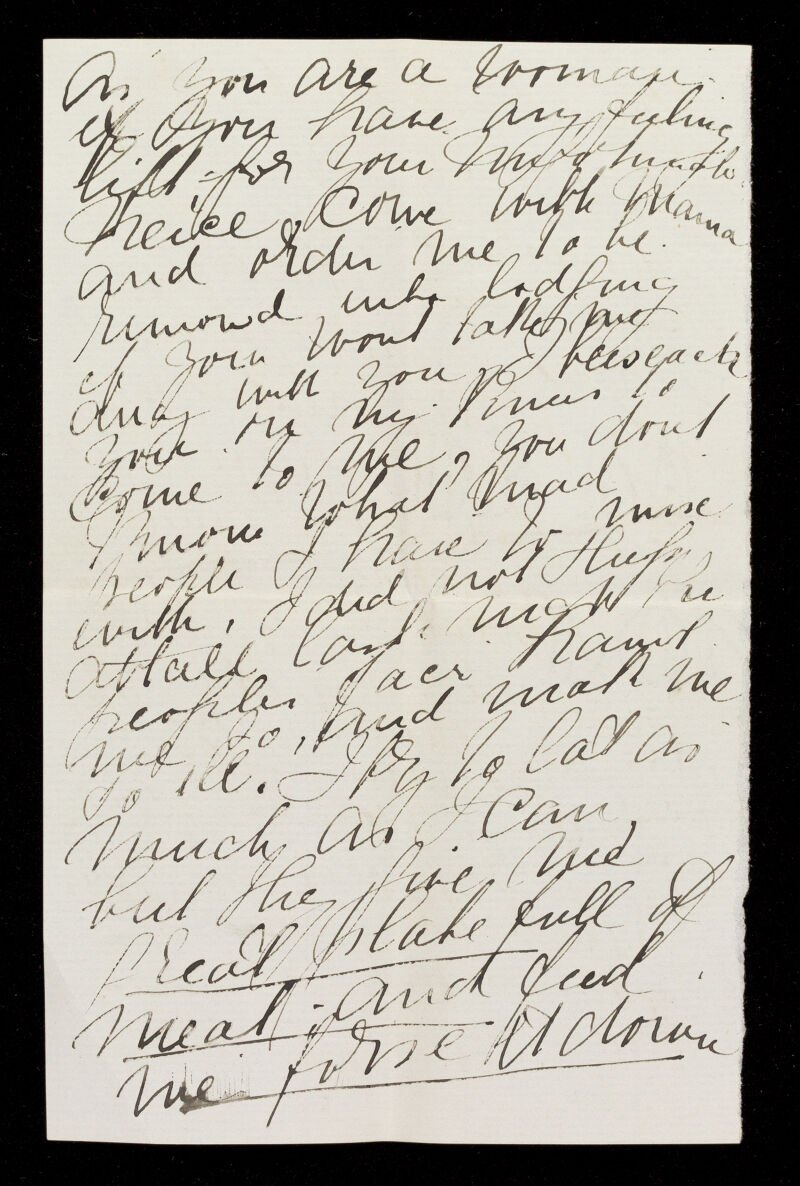 As you are a woman
if you have any feeling
left, for your unfortunate
neice, come with Mama
and order me to be
removed into lodging
if you wont take me
away with you, I beeseach
you on my knees to
come to me, you dont
know what mad
people I have to mixe
with, I did not sleep
attall last night the
peoples faces haunt
me so, and make me
so ill. I try to eat as
much as I can,
but they give me
great plate full of
meat and feed
me forse it down